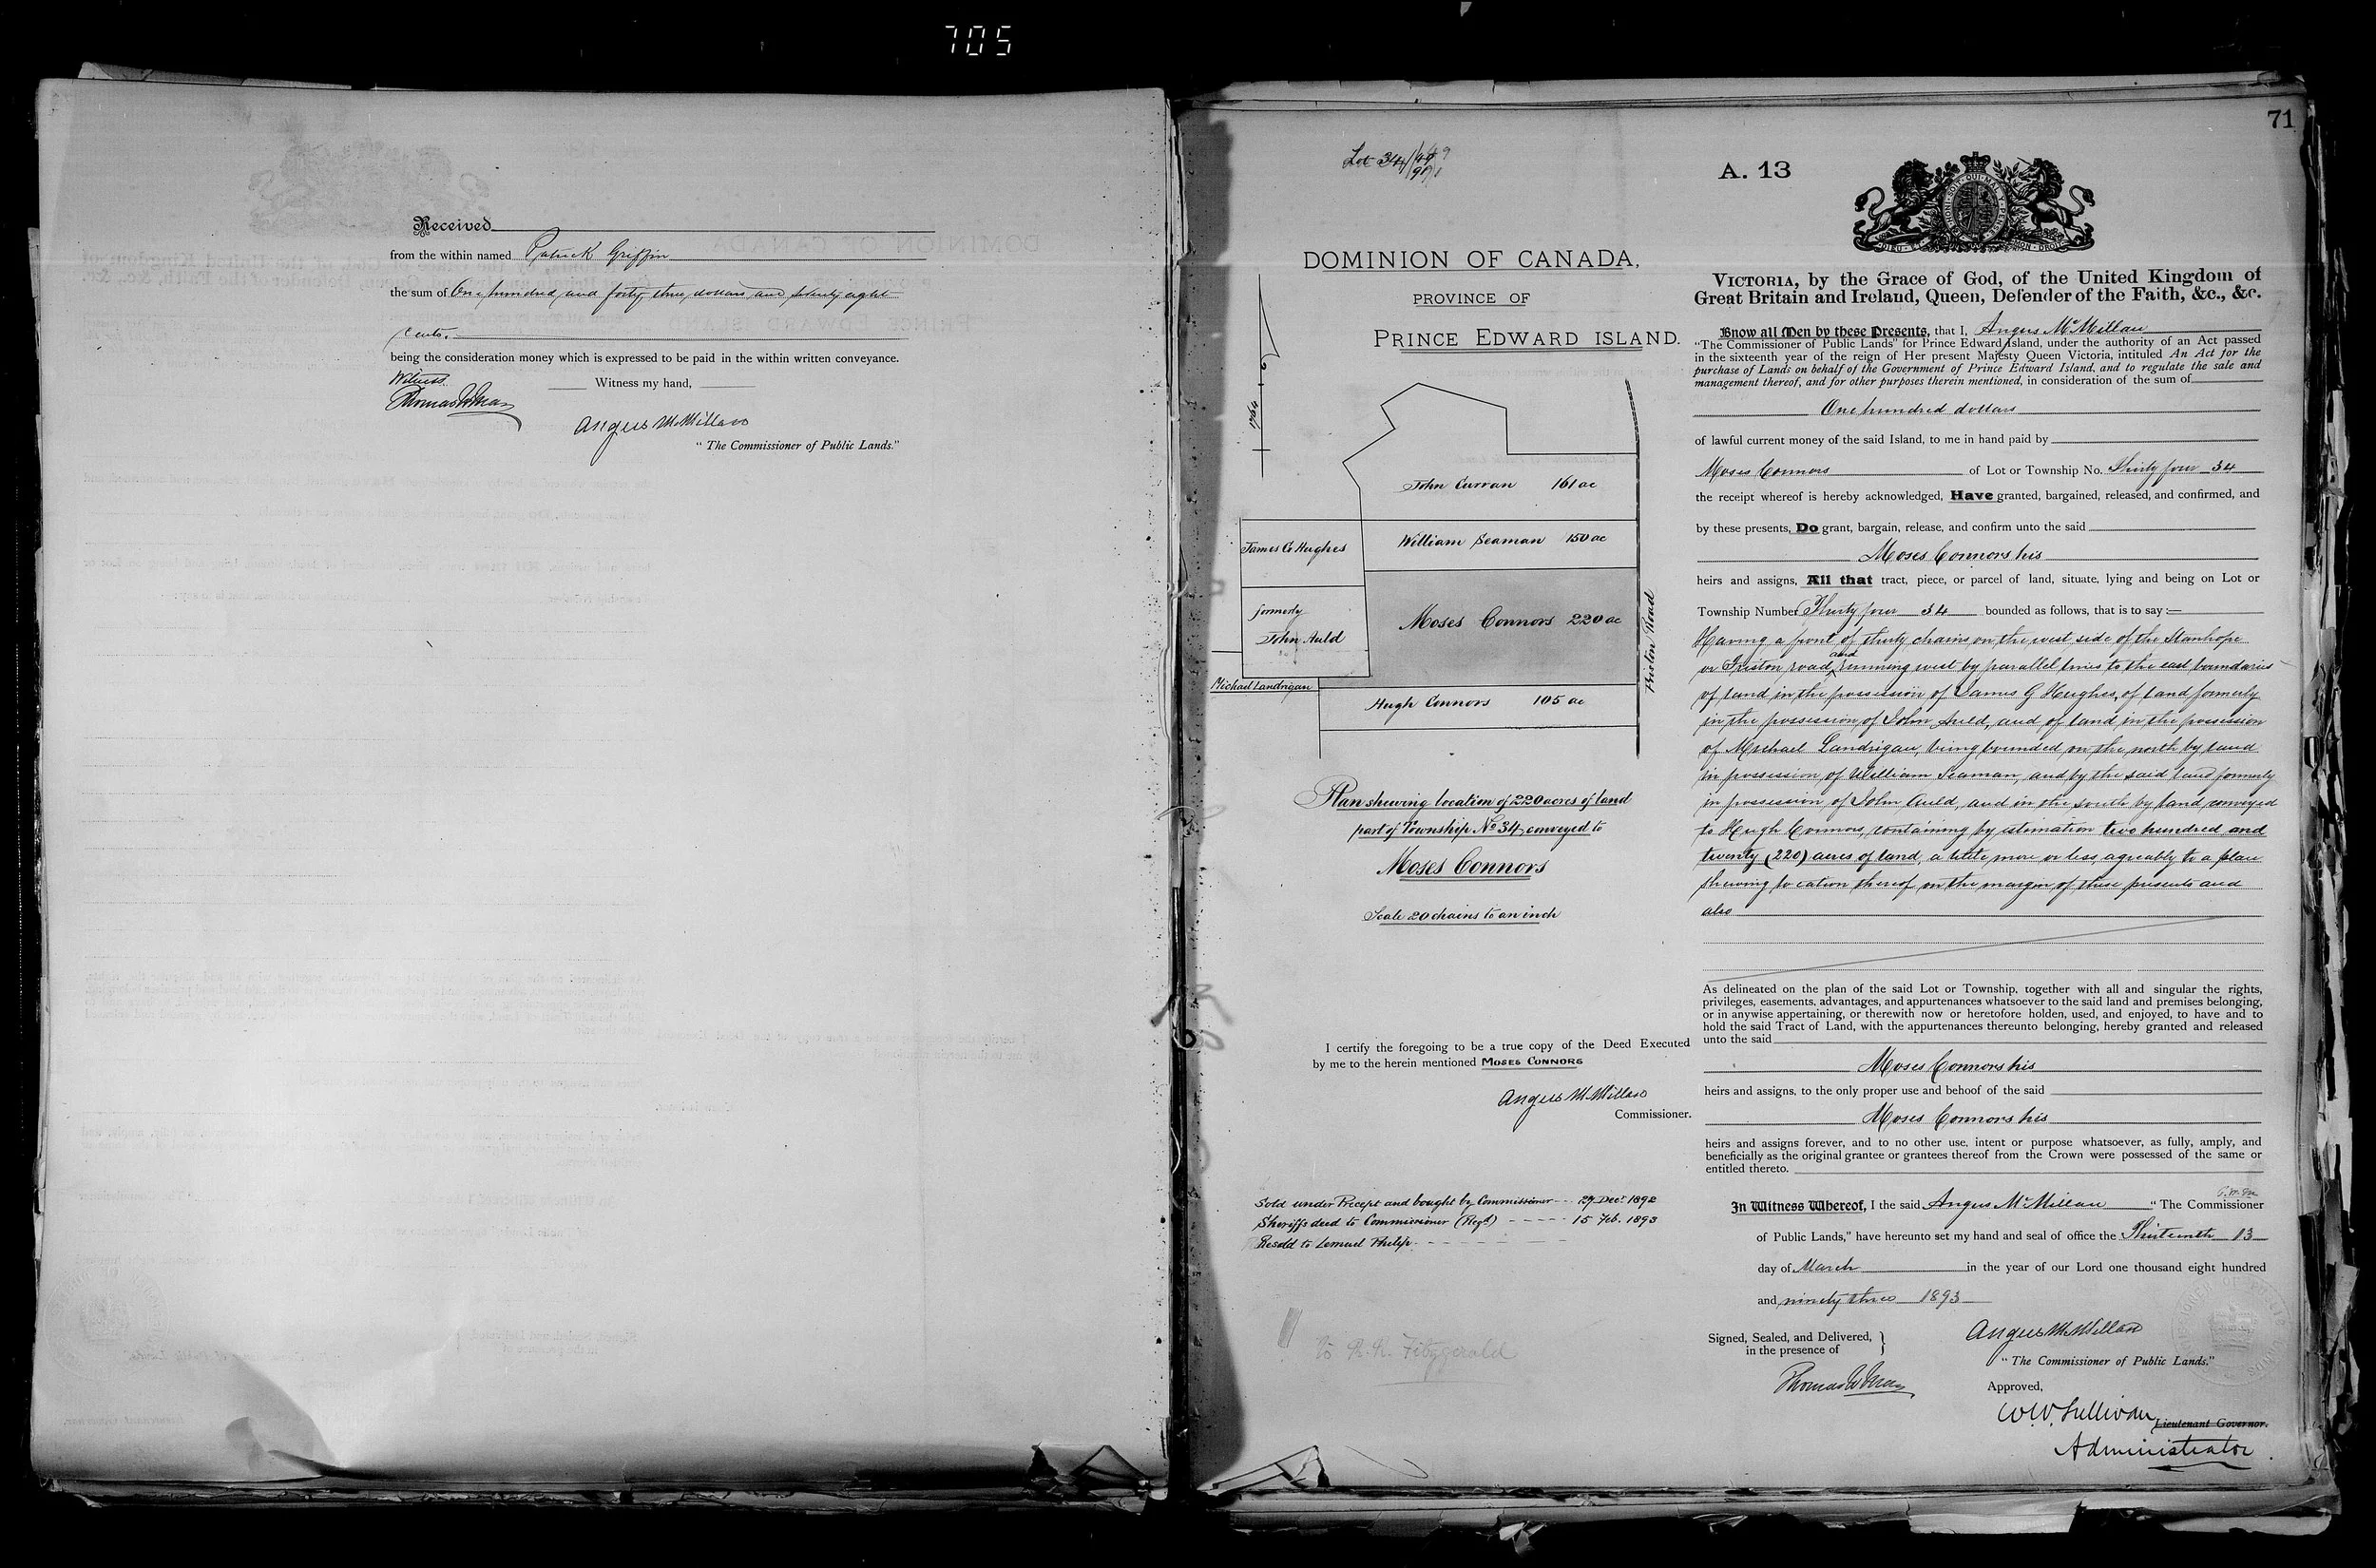 705
Received
from the within named Patrick Griffin
the sum of One hundred and forty three dollars and twenty eight
cents.
being the consideration money which is expressed to be paid in the within written conveyance.
Witness
Witness my hand,
Angus McMillan
"The Commissioner of Public Lands."
71
Lot 34
A. 13
DOMINION OF CANADA,
PROVINCE OF
PRINCE EDWARD ISLAND.
1764
John Curran 161 ac
William Seaman 150 ac
James G Hughes
formerly
John Auld
Moses Connors 220 ac
Friston Road
Michael Landrigan
Hugh Connors 105 ac
Plan shewing location of 220 acres of land
part of Township No 34 conveyed to
Moses Connors
Scale 20 chains to an inch
I certify the foregoing to be a true copy of the Deed Executed
by me to the herein mentioned MOSES CONNORS
Angus McMillan
Commissioner.
Sold under Precept and bought by Commissioner --- 29 Dec. 1892
Sheriffs deed to Commissioner (Regd) ----- 15 Feb. 1893
Resold to Lemuel Philip
To R. R. Fitzgerald
VICTORIA, by the Grace of God, of the United Kingdom of
Great Britain and Ireland, Queen, Defender of the Faith, &c., &c.
Know all Men by these Presents, that I, Angus McMillan
"The Commissioner of Public Lands" for Prince Edward Island, under the authority of an Act passed
in the sixteenth year of the reign of Her present Majesty Queen Victoria, intituled An Act for the
purchase of Lands on behalf of the Government of Prince Edward Island, and to regulate the sale and
management thereof, and for other purposes therein mentioned, in consideration of the sum of
One hundred dollars
of lawful current money of the said Island, to me in hand paid by
Moses Connors of Lot or Township No. Thirty four 34
the receipt whereof is hereby acknowledged, Have granted, bargained, released, and confirmed, and
by these presents, Do grant, bargain, release, and confirm unto the said
Moses Connors his
heirs and assigns, All that tract, piece, or parcel of land, situate, lying and being on Lot or
Township Number Thirty four 34 bounded as follows, that is to say :—
Having a front of thirty chains on the west side of the Stanhope
or Friston road, and running west by parallel lines to the east boundaries
of land in the possession of James G Hughes, of land formerly
in the possession of John Auld, and of land in the possession
of Michael Landrigan, being bounded on the north by land
in possession of William Seaman, and by the said land formerly
in possession of John Auld, and on the south by land conveyed
to Hugh Connors, containing by estimation two hundred and
twenty (220) acres of land, a little more or less, agreeably to a plan
shewing location thereof on the margin of these presents and
also
As delineated on the plan of the said Lot or Township, together with all and singular the rights,
privileges, easements, advantages, and appurtenances whatsoever to the said land and premises belonging,
or in anywise appertaining, or therewith now or heretofore holden, used, and enjoyed, to have and to
hold the said Tract of Land, with the appurtenances thereunto belonging, hereby granted and released
unto the said
Moses Connors his
heirs and assigns, to the only proper use and behoof of the said
Moses Connors his
heirs and assigns forever, and to no other use, intent or purpose whatsoever, as fully, amply, and
beneficially as the original grantee or grantees thereof from the Crown were possessed of the same or
entitled thereto.
In Witness Whereof, I the said Angus McMillan "The Commissioner
of Public Lands," have hereunto set my hand and seal of office the Thirteenth 13
day of March in the year of our Lord one thousand eight hundred
and ninety three 1893
Signed, Sealed, and Delivered,
in the presence of
Angus McMillan
"The Commissioner of Public Lands."
Approved,
W.W. Sullivan
Lieutenant Governor.
Administrator